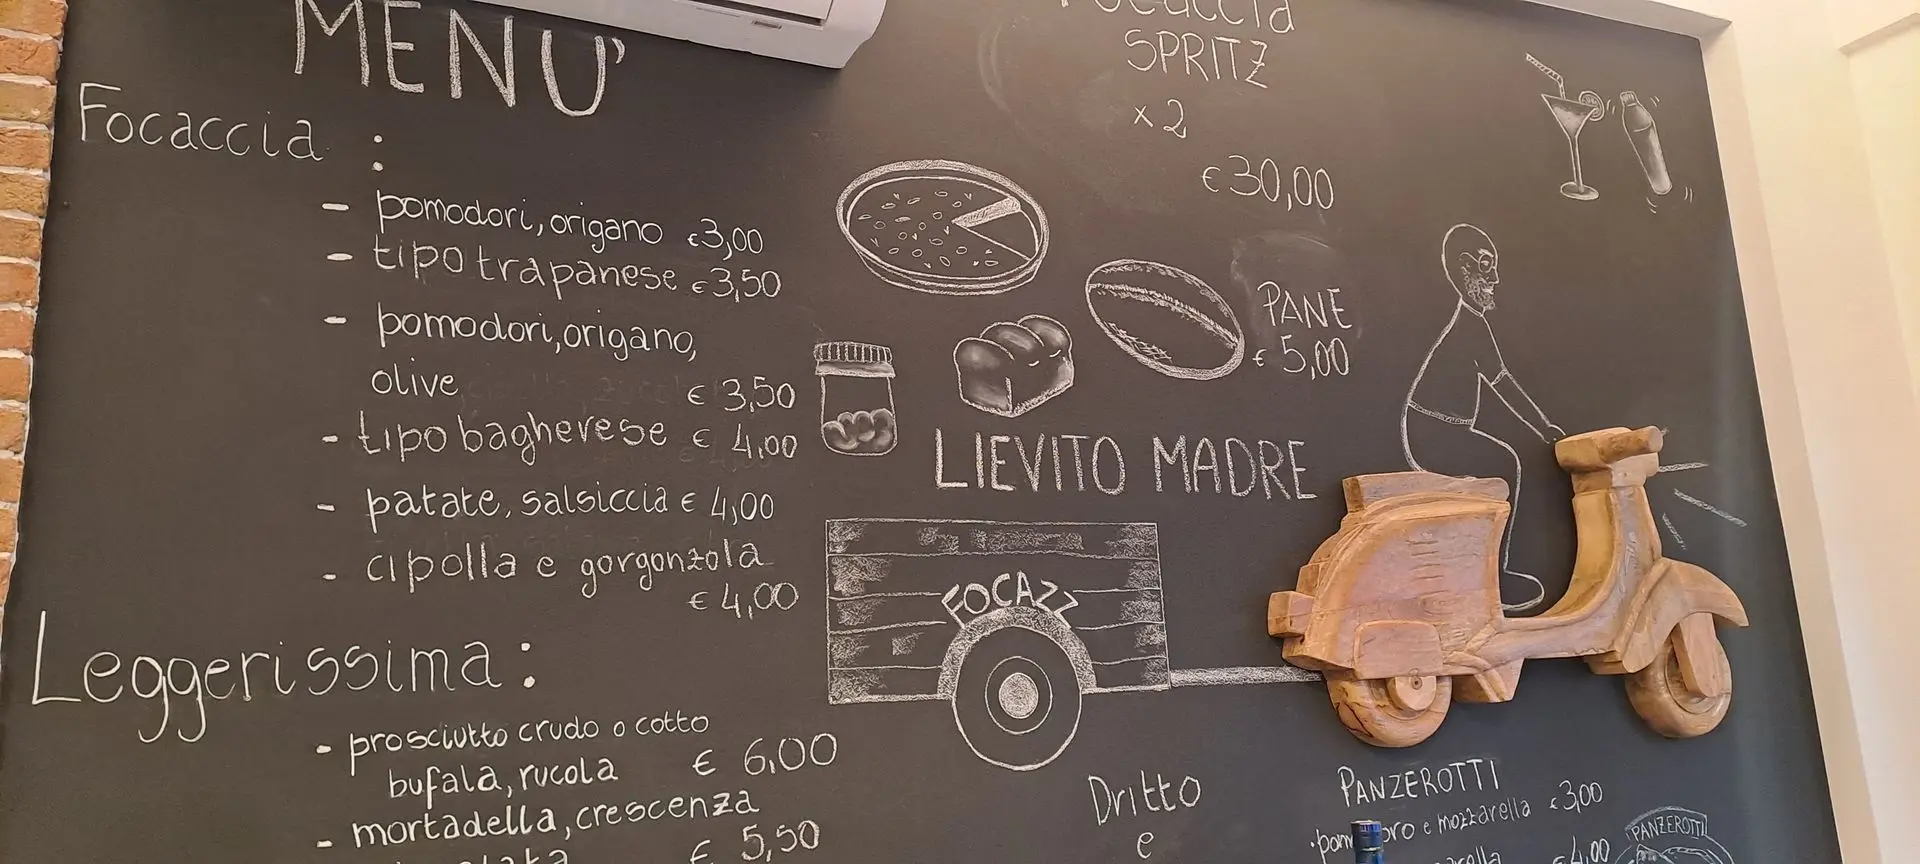 MENU'
Focaccia :
- pomodori, origano €3,00
- tipo trapanese €3,50
- pomodori, origano,
olive € 3,50
- tipo bagherese € 4,00
- patate, salsiccia € 4,00
- cipolla e gorgonzola
€ 4,00
Leggerissima :
- prosciutto crudo o cotto
bufala, rucola € 6,00
- mortadella, crescenza
€ 5,50
Focaccia
SPRITZ
x 2
€30,00
PANE
€ 5,00
LIEVITO MADRE
FOCAZZ
Dritto
e
PANZEROTTI
e mozzarella €3,00
€4,00
PANZEROTTI